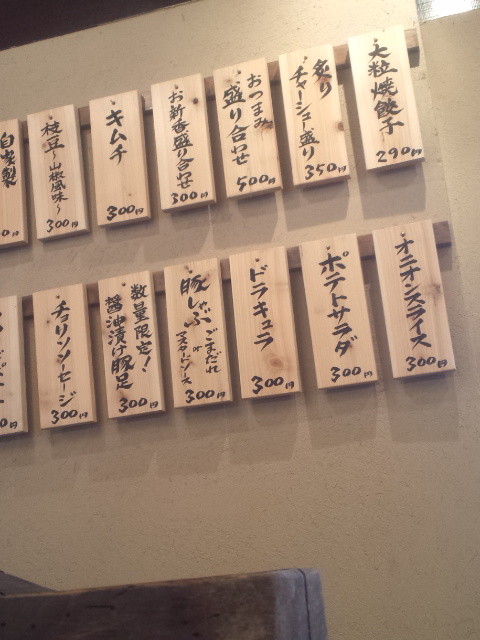 大粒焼餃子
290円
炙り
チャーシュー盛り
350円
おつまみ
盛り合わせ
500円
お新香盛り合わせ
300円
キムチ
300円
枝豆〜山椒風味〜
300円
自家製
オニオンスライス
300円
ポテトサラダ
300円
ドラキュラ
300円
豚しゃぶ
ごまだれ
or
マスタードソース
300円
数量限定!
醤油漬け豚足
300円
チョリソーソーセージ
300円